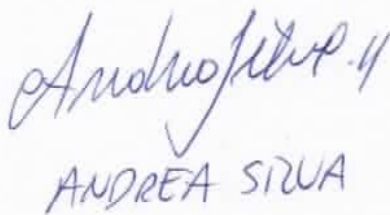 Andrea Silva
ANDREA SILVA